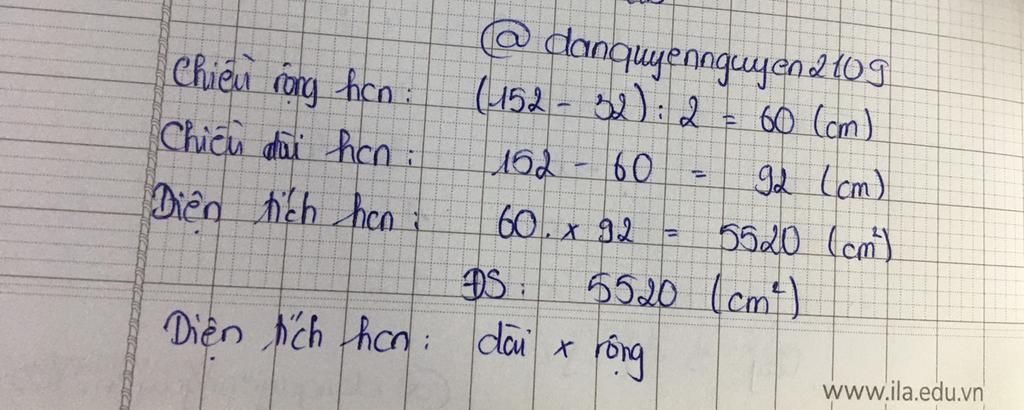 @ danquyennguyen2109
Chiều rộng hcn : (152 - 32) : 2 = 60 (cm)
Chiều dài hcn : 152 - 60 = 92 (cm)
Diện tích hcn : 60. x 92 = 5520 (cm²)
ĐS : 5520 (cm²)
Diện tích hcn : dài x rộng
www.ila.edu.vn